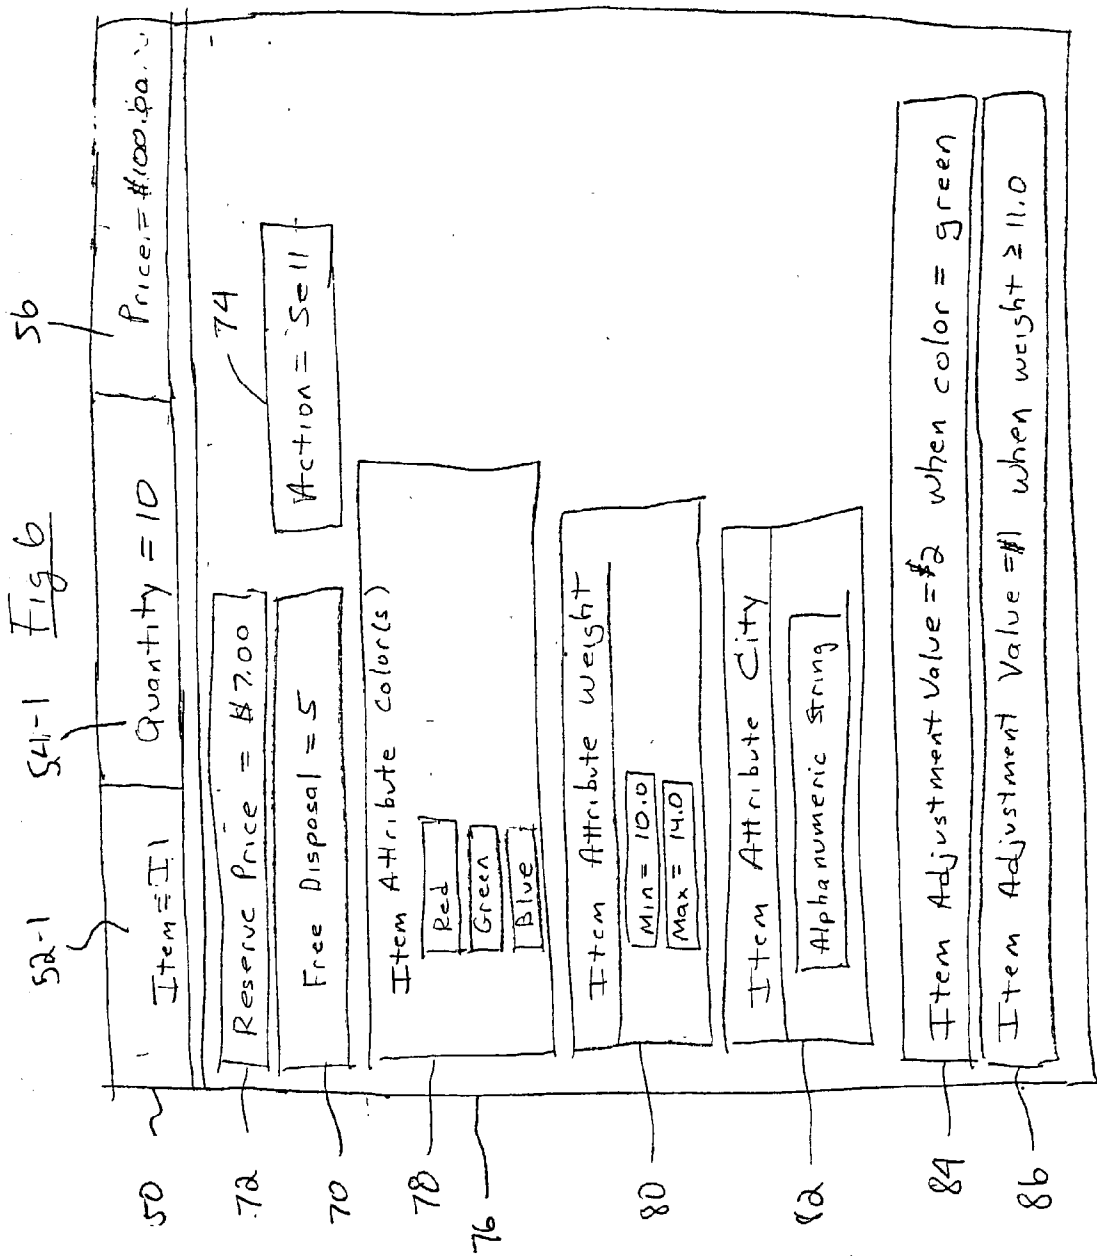 Fig 6
52-1
54-1
56
Item = I1
Quantity = 10
Price = $100.00
50
72
Reserve Price = $7.00
74
70
Free Disposal = 5
Action = Sell
78
Item Attribute Color(s)
Red
Green
Blue
76
80
Item Attribute Weight
Min = 10.0
Max = 14.0
82
Item Attribute City
Alphanumeric String
84
Item Adjustment Value = $2 when color = green
86
Item Adjustment Value = $1 when weight ≥ 11.0